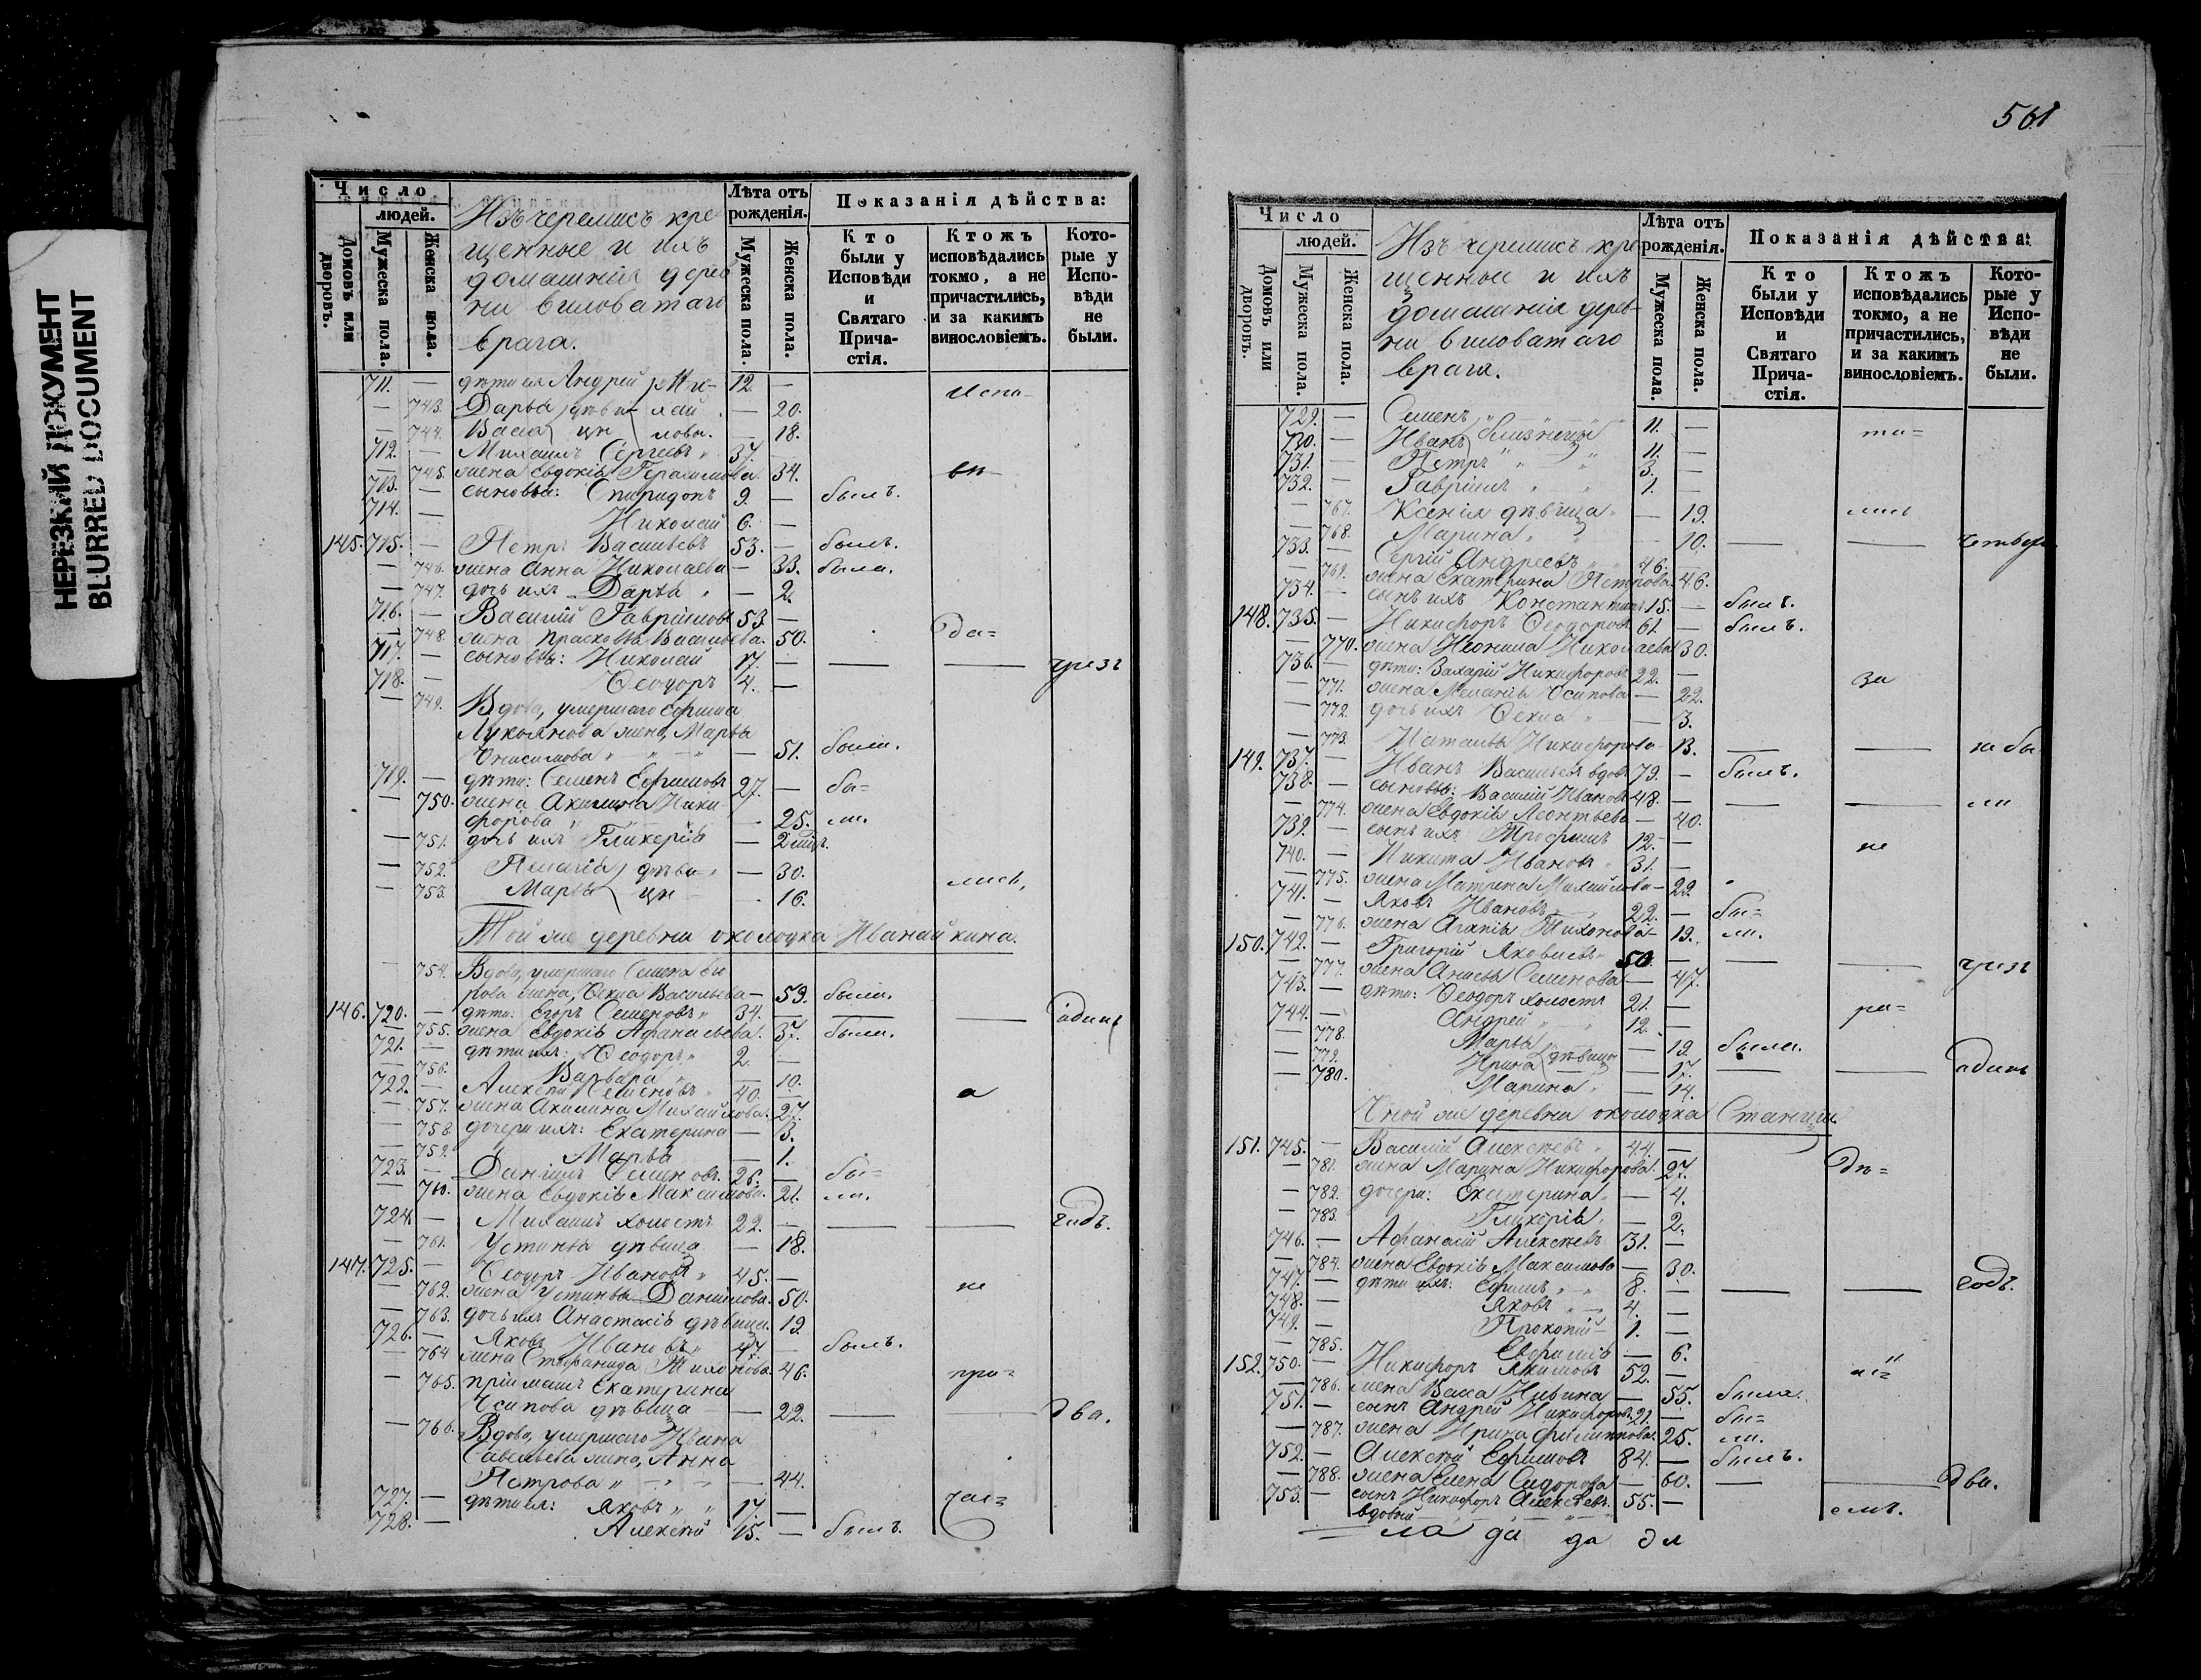 НЕРЕЗКИЙ ДОКУМЕНТ
BLURRED DOCUMENT
Число
людей.
Домовъ или дворовъ.
Мужеска пола.
Женска пола.
Изъ черемисъ кре-
щенные и ихъ
домашнія дерев
ни виловатаго
врага.
Лѣта отъ рожденія.
Мужеска пола.
Женска пола.
Показанія дѣйства:
Кто были у Исповѣди и Святаго Прича-стія.
Ктожъ исповѣдались токмо, а не причастились, и за какимъ винословіемъ.
Кото-рые у Испо-вѣди не были.
711. — дѣти ея Андрей Ми- 12. —
— 743. Дарья дѣви- хай — 20.
— 744. Васса цы ловы. — 18.
712. — Михаилъ Сергеевъ 37. —
— 745. жена Евдокія Герасимова. 34.
713. — сыновья: Спиридонъ 9. — былъ.
714. — Николай 6. —
145. 715. — Петръ Васильевъ 53. — былъ.
— 746. жена Анна Николаева — 33. была.
— 747. дочь ихъ Дарья — 2.
716. — Василій Гавріиловъ 53 —
— 748. жена Прасковья Васильева. 50. да=
717. — сыновья: Николай 17. — — — чрезъ
718. — Ѳеодоръ 4. —
— 749. Вдова, умершаго Ефима
Лукоянова жена, Марѳа
Онисимова — 51. была.
719. — дѣти: Семенъ Ефимовъ 27. — бы=
— 750. жена Акилина Ники-
форова — 25. ли.
— 751. дочь ихъ Гликерія — 2
— 752. Пелагія дѣви- — 30.
— 753. Марѳа цы — 16. лись,
Той же деревни околодка Иванайкина.
— 754. Вдова, умершаго Семена
рова жена, Ѳекла Васильева — 59. была.
146. 720. — дѣти: Егоръ Семеновъ 34. — — — одинъ
— 755. жена Евдокія Афанасьева. 37. была.
721. — дѣти ихъ: Ѳеодоръ 2. —
— 756. Варвара — 10.
722. — Алексѣй Семеновъ 40. — а
— 757. жена Акилина Михайлова. 27.
— 758. дочери ихъ: Екатерина — 3.
— 759. Марѳа — 1.
723. — Даніилъ Семеновъ 26. — бы=
— 760. жена Евдокія Максимова. 21. ли.
724. — Михаилъ холостъ 22. — — — годъ.
— 761. Устинья дѣвица — 18.
147. 725. — Ѳеодоръ Ивановъ 45. —
— 762. жена Устинья Данилова. 50. не
— 763. дочь ихъ Анастасія дѣвица. 19
726. — Яковъ Ивановъ 47. — былъ.
— 764 жена Стефанида Тихонова. 46.
— 765. пріимышъ Екатерина при=
Осипова дѣвица — 22. — — два.
— 766. Вдова, умершаго Ивана
Савельева жена, Анна
Петрова — 44.
727. — дѣти ея: Яковъ 17. — час=
728. — Алексѣй 15. — былъ.
561
Число
людей.
Домовъ или дворовъ.
Мужеска пола.
Женска пола.
Изъ черемисъ кре
щенные и ихъ
домашнія дерев-
ни виловатаго
врага.
Лѣта отъ рожденія.
Мужеска пола.
Женска пола.
Показанія дѣйства:
Кто были у Исповѣди и Святаго Прича-стія.
Ктожъ исповѣдались токмо, а не причастились, и за какимъ винословіемъ.
Кото-рые у Испо-вѣди не были.
729. — Семенъ 11. —
730. — Иванъ близнецы 11. — ти=
731. — Петръ 3. —
732. — Гавріилъ 1. —
— 767. Ксенія дѣвица — 19. лись
— 768. Марина — 10. — —
733. — Сергій Андреевъ 46. —
— 769. жена Екатерина Петрова. 46.
734. — сынъ ихъ Константинъ 15. — былъ.
148. 735. — Никифоръ Ѳеодоровъ 61. — былъ.
— 770. жена Неонила Николаева 30.
736. — дѣти: Захарій Никифоровъ 22. — за
— 771. жена Меланія Осипова — 22.
— 772. дочь ихъ Ѳекла — 3.
— 773. Наталья Никифорова — 13. — — за бы
149. 737. — Иванъ Васильевъ вдовъ 79. — былъ.
738. — сыновья: Василій Ивановъ 48. — — — ли
— 774. жена Евдокія Леонтьева — 40.
739. — сынъ ихъ Трофимъ 12. — не
740. — Никита Ивановъ 31. —
— 775. жена Матрена Михайлова — 29.
741. — Яковъ Ивановъ 22. — бы=
— 776. жена Агапія Тихонова — 19. ли.
150. 742. — Григорій Яковлевъ 50. — — — чрезъ
— 777. жена Анисья Семенова — 47.
743. — дѣти: Ѳеодоръ холостъ 21. —
744. — Андрей 12. — ра=
— 778. Марья — 19. была.
— 779. Ирина дѣвицы — 17. — — одинъ
— 780. Марина — 14.
Оной же деревни околодка Станція.
151. 745. — Василій Алексѣевъ 44. —
— 781. жена Марина Никифорова. 27. дѣ=
— 782. дочери: Екатерина — 4.
— 783. Гликерія — 2.
746. — Афанасій Алексѣевъ 31. —
— 784. жена Евдокія Максимова — 30.
747. — дѣти ихъ: Ефимъ 8. — — — годъ.
748. — Яковъ 4. —
749. — Прокопій 1. —
— 785. Евфимія — 6.
152. 750. — Никифоръ Якимовъ 52. —
— 786. жена Васса Ильина — 55. была.
751. — сынъ Андрей Никифоровъ. 21. — бы=
— 787. жена Ирина Филиппова. 25. ли.
752. — Алексѣй Ефимовъ 84. — былъ.
— 788. жена Елена Сидорова — 60. — — два.
753. — сынъ Никифоръ Алексѣевъ. 55. —
вдовый емъ.
ла да да дл